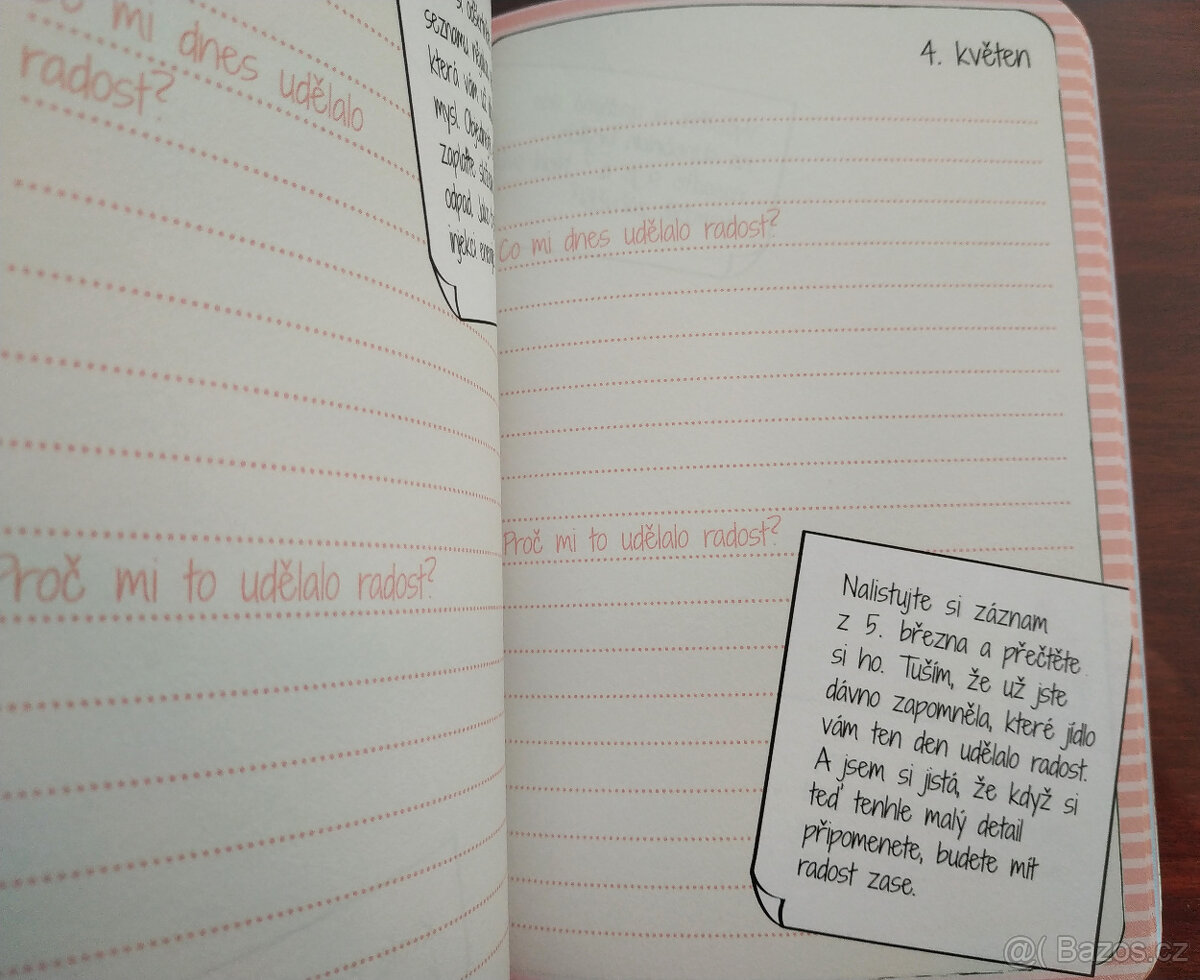 mi dnes udělalo
radost?
seznamu
která vám už
mysl.
zaplaťte
odpad.
injekci
Proč mi to udělalo radost?
4. květen
Co mi dnes udělalo radost?
Proč mi to udělalo radost?
Nalistujte si záznam
z 5. března a přečtěte
si ho. Tuším, že už jste
dávno zapomněla, které jídlo
vám ten den udělalo radost.
A jsem si jistá, že když si
teď tenhle malý detail
připomenete, budete mít
radost zase.
@( Bazos.cz